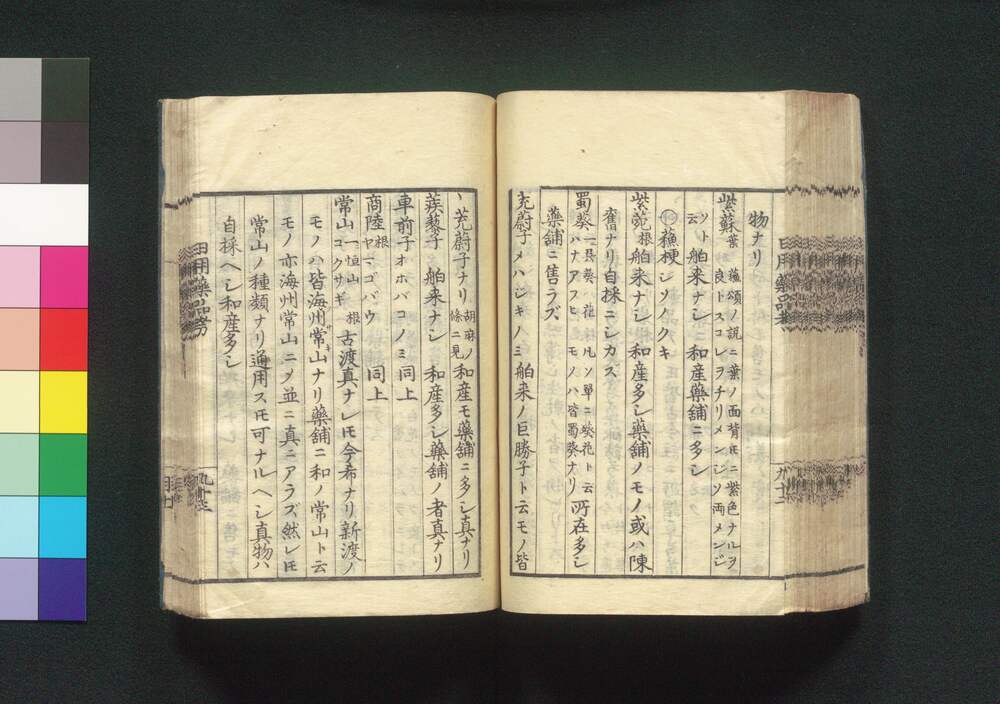 物ナリ
紫蘇 葉 蘓頌ノ説ニ葉ノ面背圧ニ紫色ナルヲ
良トスコレヲチリメンジソ両メンジ
ソト云 舶来ナシ 和産藥舗ニ多シ
蘓梗 シソノクキ
紫菀 根 舶来ナシ 和産多シ藥舗ノモノ或ハ陳
舊ナリ自採ニシカス
蜀葵 一具葵 花 ハナアフヒ 凡ソ單ニ葵花ト云
モノハ皆蜀葵ナリ 所在多シ
藥舗ニ售ラズ
茺蔚子 メハジキノミ 舶来ノ巨勝子ト云モノ皆
茺蔚子ナリ 胡麻ノ條ニ見 和産モ藥舗ニ多シ真ナリ
蒺藜子 舶来ナシ 和産多シ藥舗ノ者真ナリ
車前子 オホバコノミ 同上
商陸 根 ヤマゴバウ 同上
常山 一恒山 根 コクサギ 古渡真ナレ圧今希ナリ新渡ノ
モノハ皆海州常山ナリ藥舗ニ和ノ常山ト云
モノ亦海州常山ニ乄並ニ真ニアラズ然レ圧
常山ノ種類ナリ通用ス圧可ナルヘシ真物ハ
自採ヘシ和産多シ
日用藥品考
九十二
日用藥品考